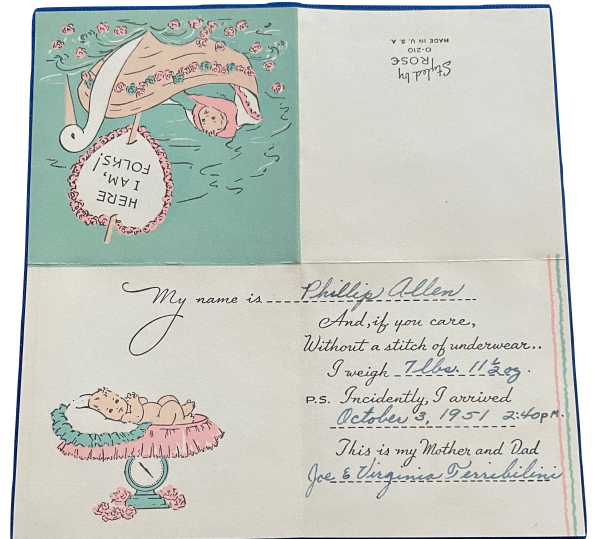 HERE
I AM,
FOLKS!
Styled by
ROSE
O-210
MADE IN U. S. A.
My name is Phillip Allen
And, if you care,
Without a stitch of underwear..
I weigh 7 lbs. 11 1/2 oz.
P.S. Incidently, I arrived
October 3, 1951 2:40 P.M.
This is my Mother and Dad
Joe & Virginia Terribilini